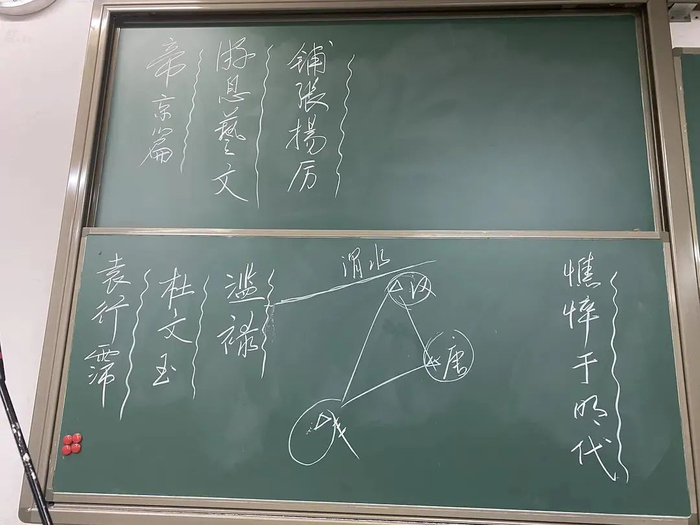 鋪張揚厉
游息藝文
帝京篇
憔悴于明代
渭水
汉
唐
滥禄
杜文玉
袁行霈